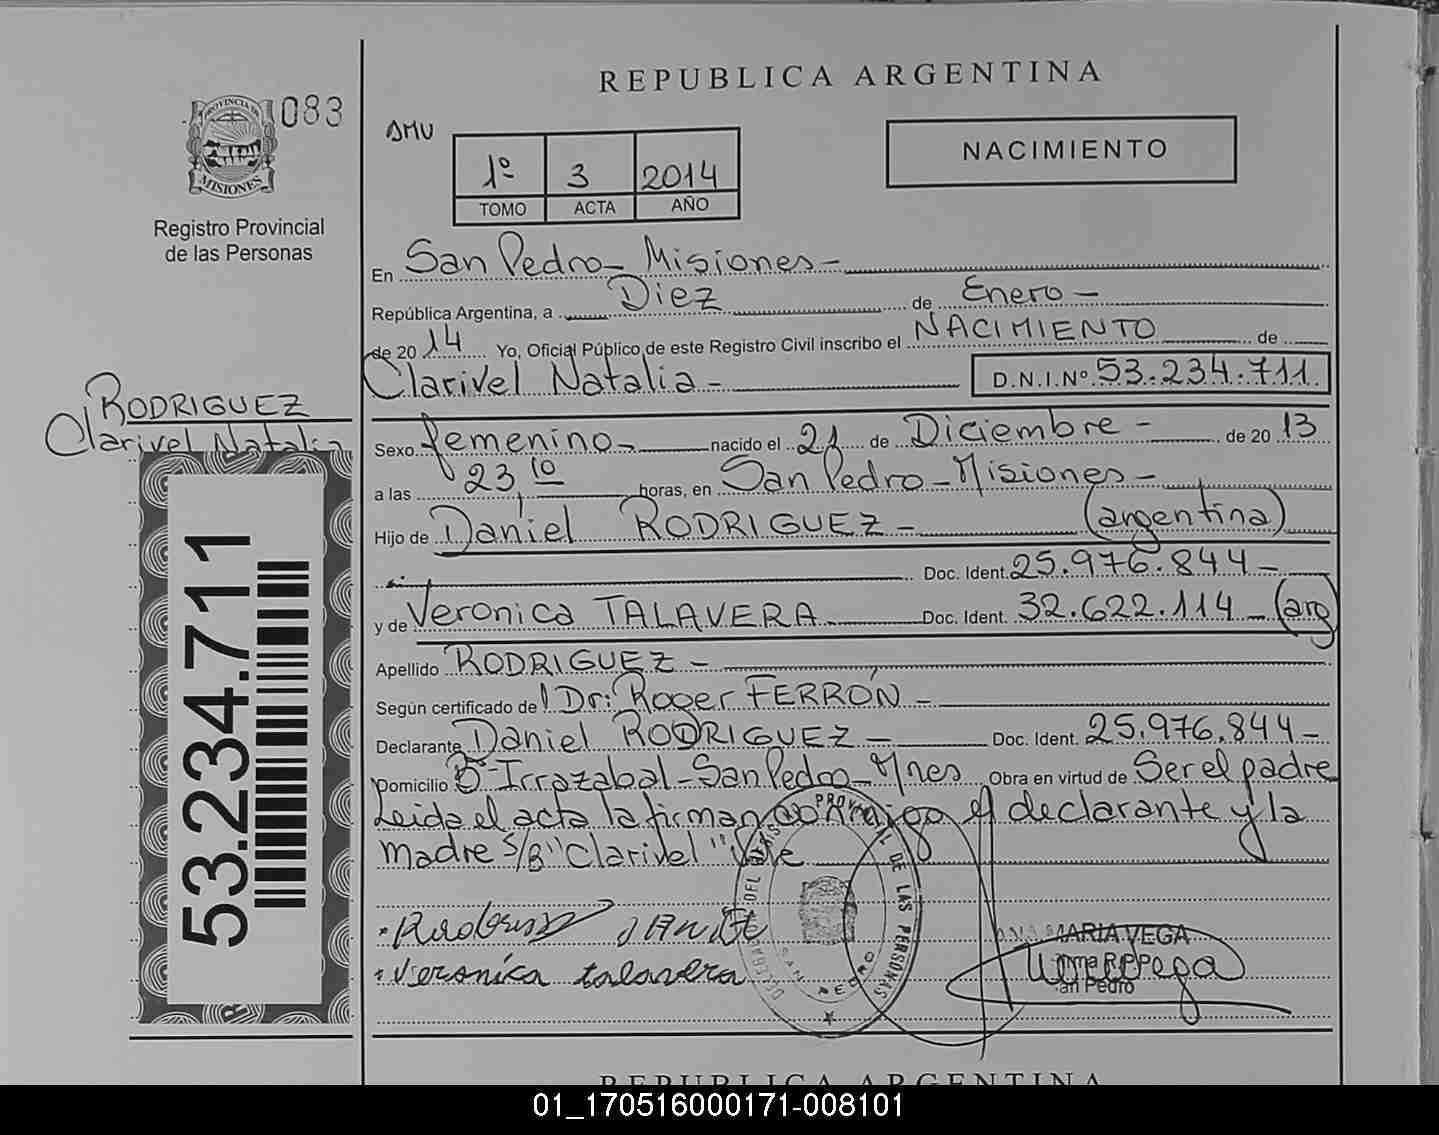 REPUBLICA ARGENTINA
PROVINCIA DE
MISIONES
083
Registro Provincial
de las Personas
DMU
1º 3 2014
TOMO ACTA AÑO
NACIMIENTO
En San Pedro - Misiones -
República Argentina, a Diez de Enero -
de 2014 Yo, Oficial Público de este Registro Civil inscribo el NACIMIENTO de
Clarivel Natalia - D.N.I.Nº 53.234.711
RODRIGUEZ
Clarivel Natalia
Sexo femenino - nacido el 21 de Diciembre - de 2013
a las 23,10 horas, en San Pedro - Misiones -
Hijo de Daniel RODRIGUEZ - (argentina)
Doc. Ident. 25.976.844 -
y de Veronica TALAVERA Doc. Ident. 32.622.114 - (arg)
Apellido RODRIGUEZ -
Según certificado de Dr: Roger FERRÓN -
Declarante Daniel RODRIGUEZ - Doc. Ident. 25.976.844 -
Domicilio Bº Irrazabal - San Pedro - Mnes Obra en virtud de Ser el padre
Leida el acta la firman conmigo el declarante y la
madre S/B "Clarivel" Vale
53.234.711
PROVINCIAL DE LAS PERSONAS
SAN PEDRO
veronica talavera
MARIA VEGA
San Pedro
REPUBLICA ARGENTINA
01_170516000171-008101